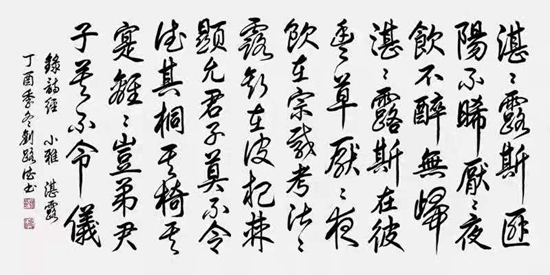 湛〻露斯匪
陽不晞厭〻夜
飲不醉無歸
湛〻露斯在彼
豐草厭〻夜
飲在宗載考湛〻
露斯在彼杞棘
顯允君子莫不令
德其桐其椅其
實離〻豈弟君
子莫不令儀
錄詩經 小雅 湛露
丁酉季冬劉路德書